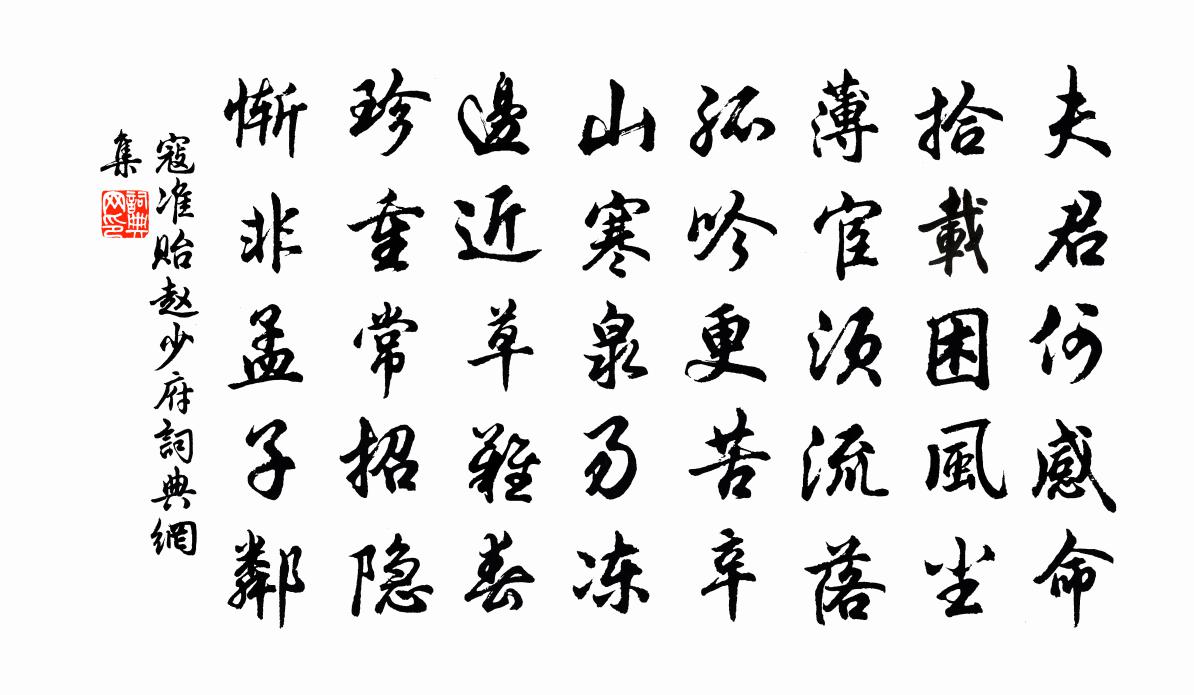 夫君何感命
拾載困風尘
薄宦须流落
孤吟更苦辛
山寒泉易冻
邊近草難春
珍重常招隐
惭非孟子鄰
寇准貽赵少府詞典網
集
詞典
网印